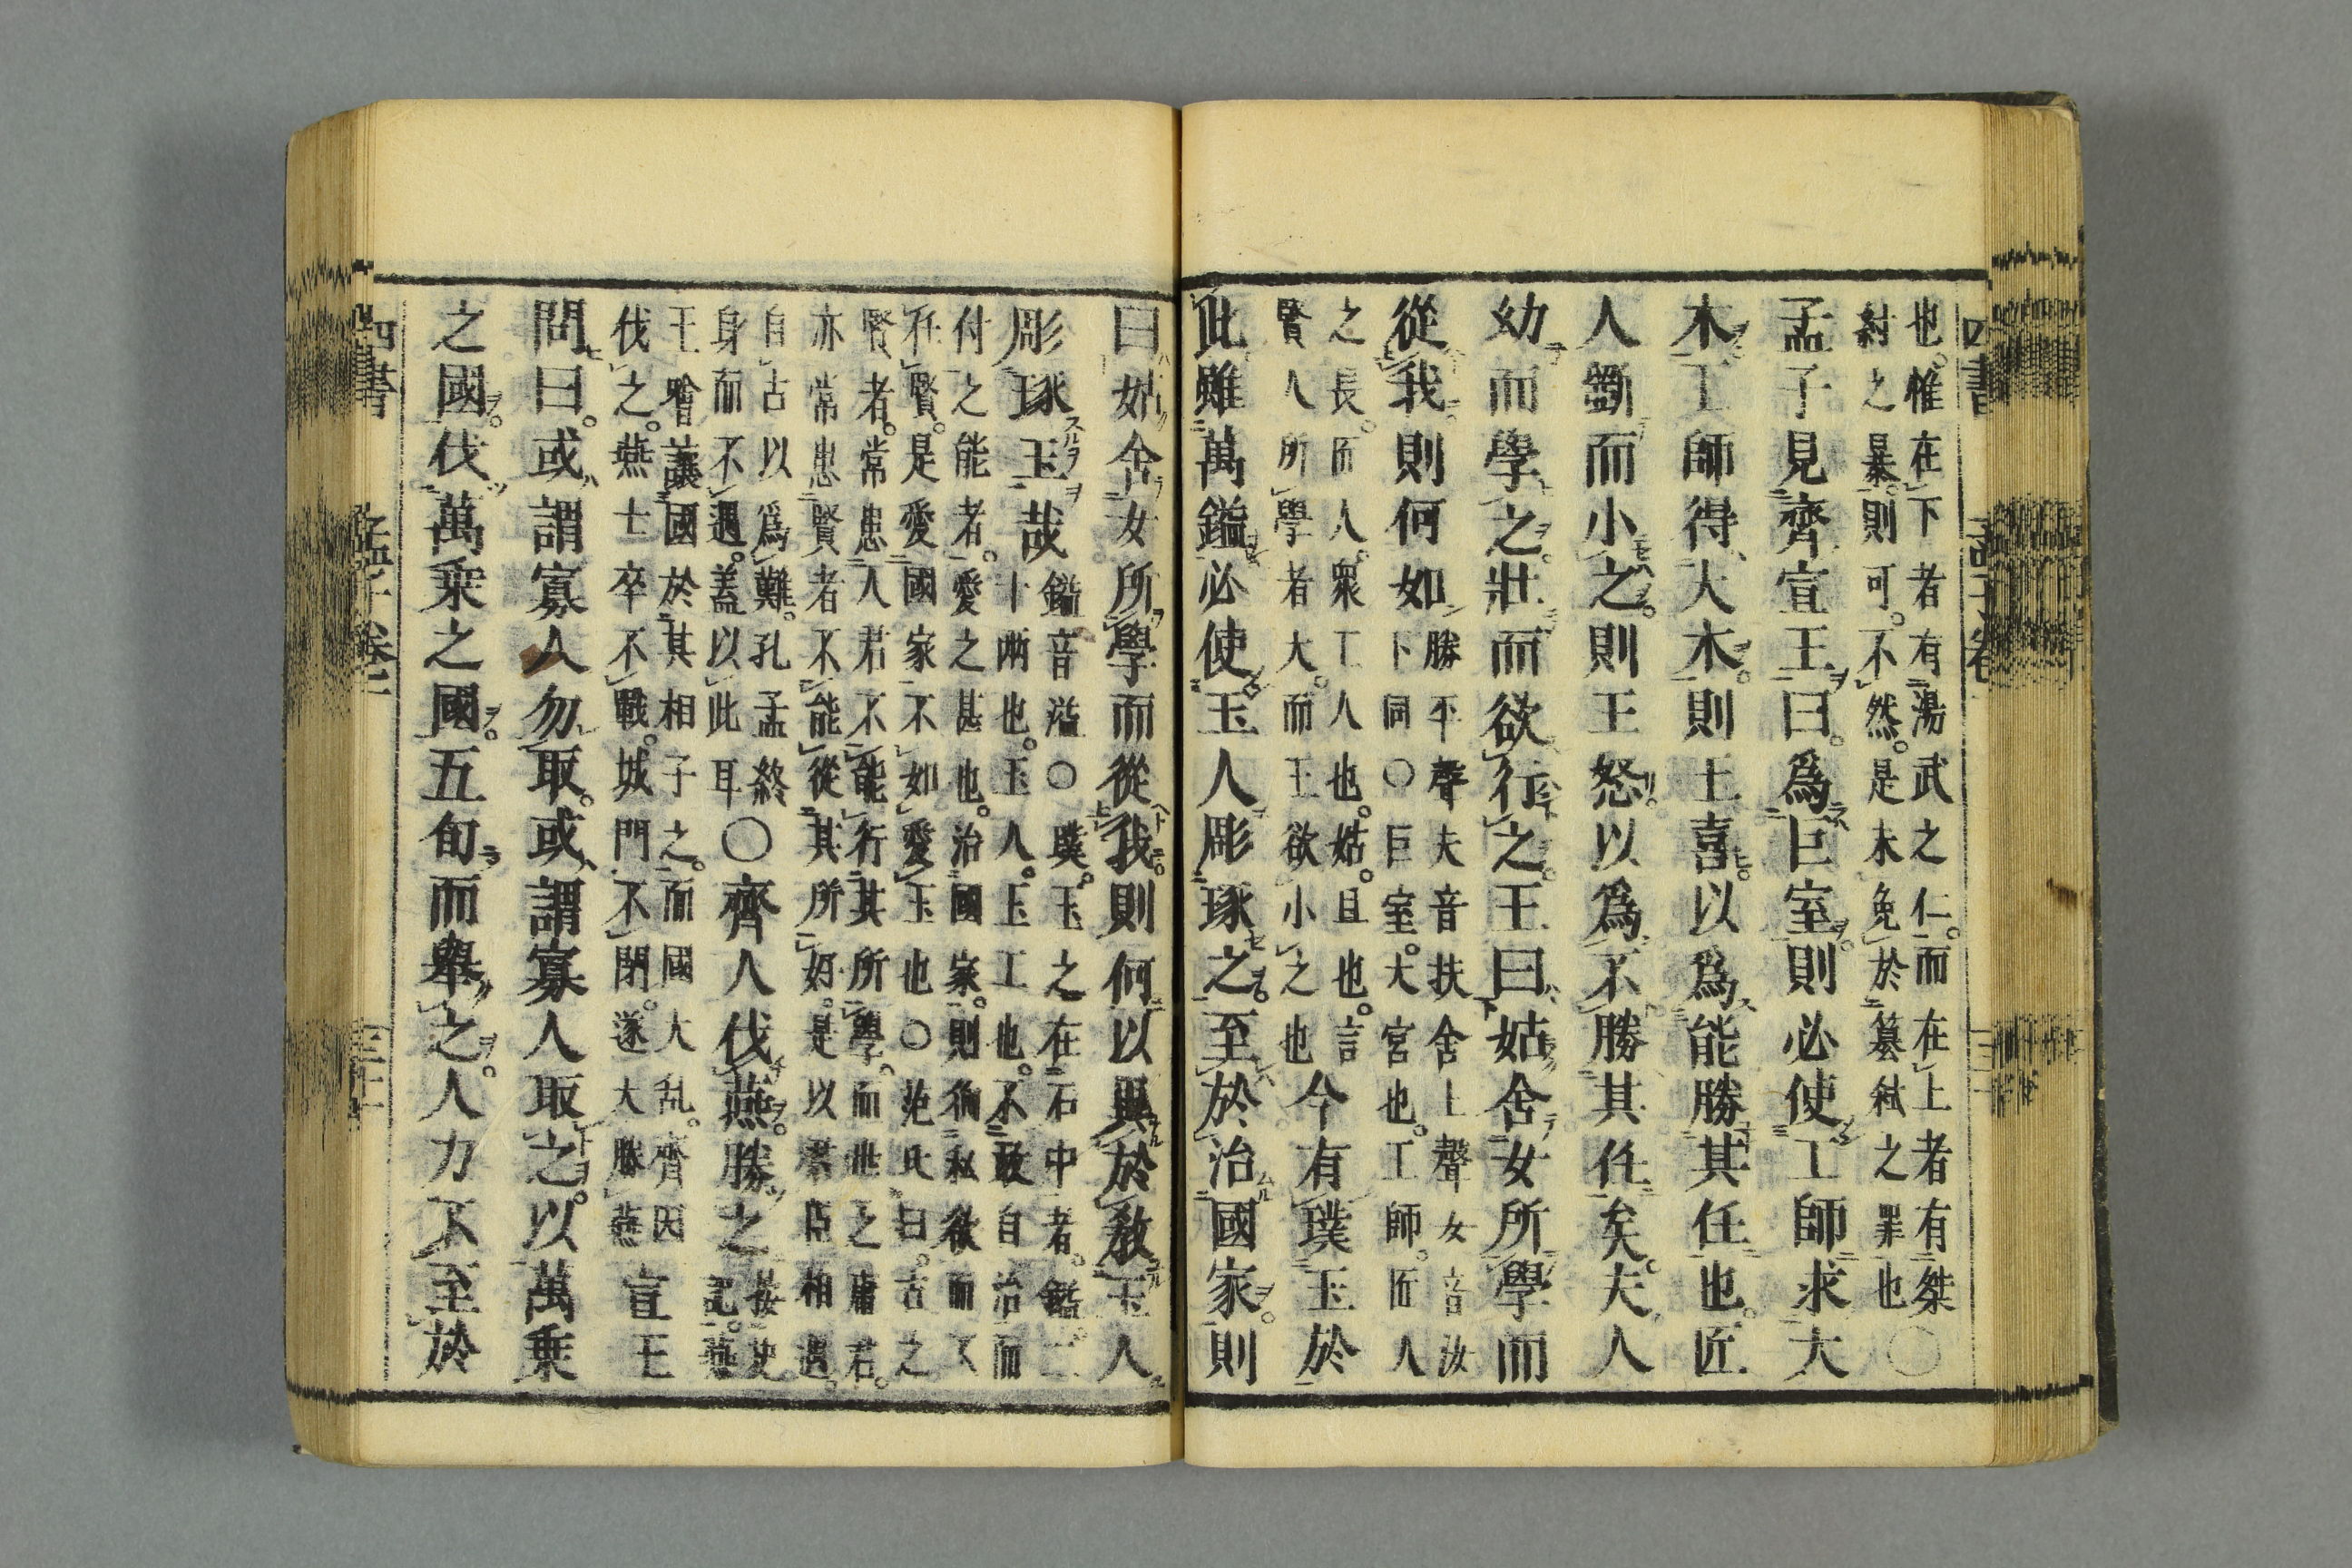 也惟在下者有湯武之仁而在上者有桀
紂之暴則可不然是未免於簒弑之罪也〇
孟子見齊宣王曰爲巨室則必使工師求大
木工師得大木則王喜以爲能勝其任也匠
人斵而小之則王怒以爲不勝其任矣夫人
幼而學之壯而欲行之王曰姑舍女所學而
從我則何如
勝平聲夫音扶舍上聲女音汝
下同〇巨室大宮也工師匠人
之長匠人衆工人也姑且也言
賢人所學者大而王欲小之也
今有璞玉於
此雖萬鎰必使玉人彫琢之至於治國家則
曰姑舍女所學而從我則何以異於敎玉人
彫琢玉哉
鎰音溢〇璞玉之在石中者鎰二
十兩也玉人玉工也不敢自治而
付之能者愛之甚也治國家則徇私欲而不
任賢是愛國家不如愛玉也〇范氏曰古之
賢者常患人君不能行其所學而世之庸君
亦常患賢者不能從其所好是以君臣相遇
自古以爲難孔孟終
身而不遇蓋以此耳
〇齊人伐燕勝之
按史
記燕
王噲讓國於其相子之而國大乱齊因
伐之燕士卒不戰城門不閉遂大勝燕
宣王
問曰或謂寡人勿取或謂寡人取之以萬乗
之國伐萬乗之國五旬而舉之人力不至於
四書 孟子卷二